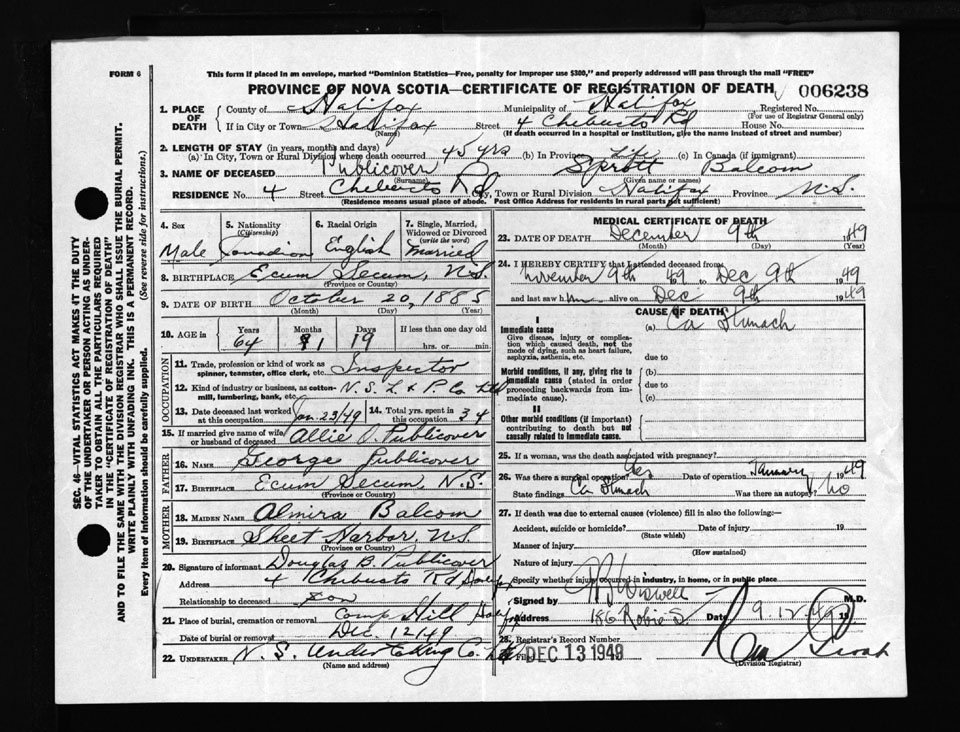 FORM 6
This form if placed in an envelope, marked "Dominion Statistics—Free, penalty for improper use $300," and properly addressed will pass through the mail "FREE"
PROVINCE OF NOVA SCOTIA—CERTIFICATE OF REGISTRATION OF DEATH
006238
1. PLACE OF DEATH
County of Halifax Municipality of Halifax Registered No.
(For use of Registrar General only)
If in City or Town Halifax Street 4 Chebucto Rd House No.
(Name) (If death occurred in a hospital or institution, give the name instead of street and number)
2. LENGTH OF STAY (in years, months and days)
(a) In City, Town or Rural Division where death occurred 45 yrs (b) In Province Life (c) In Canada (if immigrant)
3. NAME OF DECEASED Publicover Sprott Balcom
(Surname) (Given name or names)
RESIDENCE No. 4 Street Chebucto Rd City, Town or Rural Division Halifax Province N.S.
(Residence means usual place of abode. Post Office Address for residents in rural parts not sufficient)
4. Sex
Male
5. Nationality (Citizenship)
Canadian
6. Racial Origin
English
7. Single, Married, Widowed or Divorced (write the word)
Married
8. BIRTHPLACE Ecum Secum, N.S.
(Province or Country)
9. DATE OF BIRTH October 20, 1885
(Month) (Day) (Year)
10. AGE in Years Months Days If less than one day old
64 1 19 hrs. or min.
OCCUPATION
11. Trade, profession or kind of work as Inspector
spinner, teamster, office clerk, etc.
12. Kind of industry or business, as cotton- N.S. L & P. Co Ltd
mill, lumbering, bank, etc.
13. Date deceased last worked at this occupation Jan. 23/49
14. Total yrs. spent in this occupation 34
15. If married give name of wife or husband of deceased Allie O. Publicover
FATHER
16. NAME George Publicover
17. BIRTHPLACE Ecum Secum, N.S.
(Province or Country)
MOTHER
18. MAIDEN NAME Almira Balcom
19. BIRTHPLACE Sheet Harbor, N.S.
(Province or Country)
20. Signature of informant Douglas B. Publicover
Address 4 Chebucto Rd Halifax
Relationship to deceased son
21. Place of burial, cremation or removal Camp Hill Halifax
Date of burial or removal Dec. 12/49
22. UNDERTAKER N.S. Undertaking Co. Ltd
(Name and address)
MEDICAL CERTIFICATE OF DEATH
23. DATE OF DEATH December 9th 1949
(Month) (Day) (Year)
24. I HEREBY CERTIFY that I attended deceased from
November 9th 49 to Dec 9th 1949
and last saw him alive on Dec 9th 1949
CAUSE OF DEATH
I
Immediate cause (a) Ca Stomach
Give disease, injury or complication which caused death, not the mode of dying, such as heart failure, asphyxia, asthenia, etc.
due to
Morbid conditions, if any, giving rise to immediate cause (stated in order proceeding backwards from immediate cause).
(b)
due to
(c)
II
Other morbid conditions (if important) contributing to death but not causally related to immediate cause.
25. If a woman, was the death associated with pregnancy?
26. Was there a surgical operation? Yes Date of operation January 1949
State findings Ca Stomach Was there an autopsy? No
27. If death was due to external causes (violence) fill in also the following:—
Accident, suicide or homicide? Date of injury 19
(State which)
Manner of injury
(How sustained)
Nature of injury
Specify whether injury occurred in industry, in home, or in public place
Signed by Wiswell M.D.
Address 186 Robie St Date 9.12.49 19
28. Registrar's Record Number
Filed DEC 13 1949
(Division Registrar)
SEC. 46—VITAL STATISTICS ACT MAKES IT THE DUTY
OF THE UNDERTAKER OR PERSON ACTING AS UNDER-
TAKER TO OBTAIN ALL THE PARTICULARS REQUIRED
IN THE "CERTIFICATE OF REGISTRATION OF DEATH"
AND TO FILE THE SAME WITH THE DIVISION REGISTRAR WHO SHALL ISSUE THE BURIAL PERMIT.
WRITE PLAINLY WITH UNFADING INK. THIS IS A PERMANENT RECORD.
Every item of information should be carefully supplied. (See reverse side for instructions.)